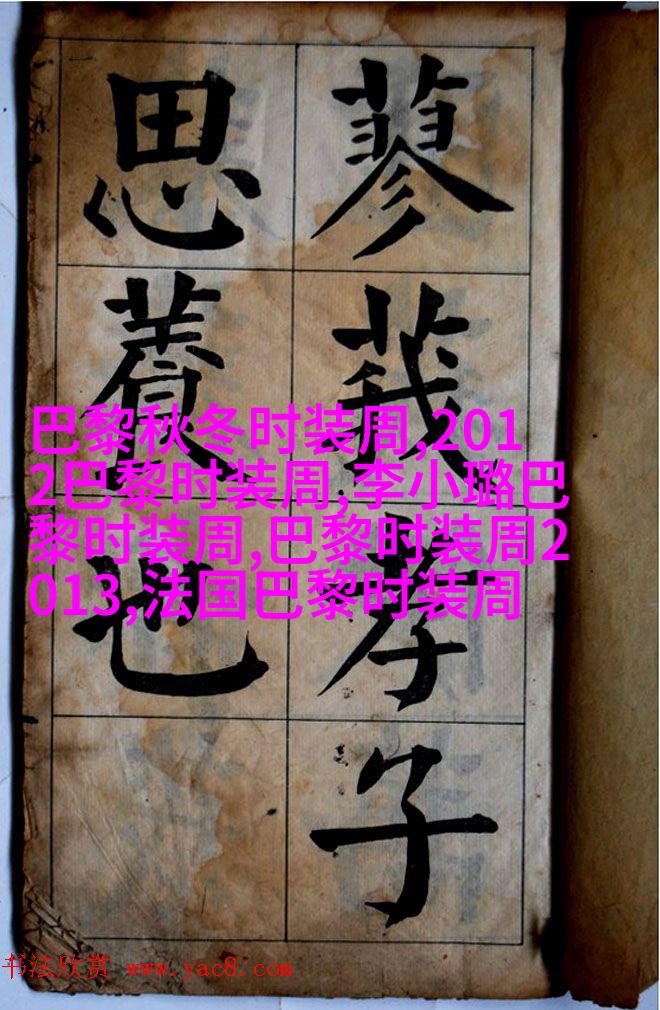 蓼莪孝子
思養也
巴黎秋冬时装周,201
2巴黎时装周,李小璐巴
黎时装周,巴黎时装周2
013,法国巴黎时装周
书法欣赏 www.yac8.com